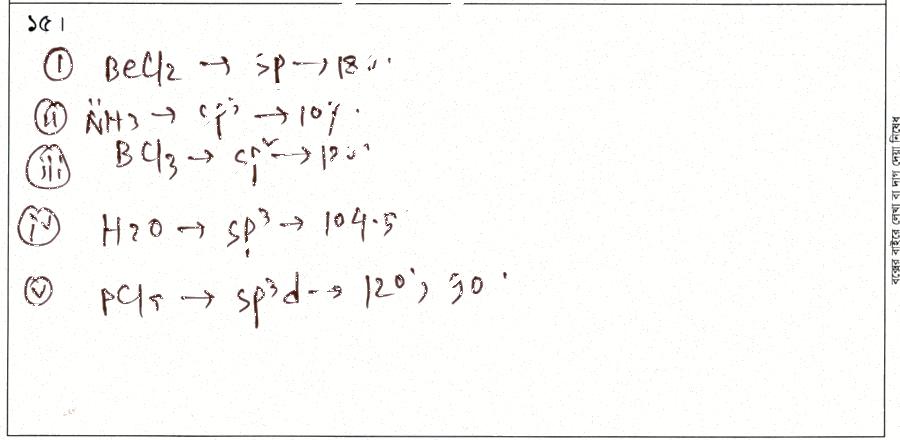 ১৫।
(i) BeCl2 → sp → 180°
(ii) N̈H3 → sp³ → 107°
(iii) BCl3 → sp² → 120°
(iv) H2O → sp³ → 104.5
(v) PCl5 → sp³d → 120°, 90°
বক্সের বাইরে লেখা বা দাগ দেয়া নিষেধ